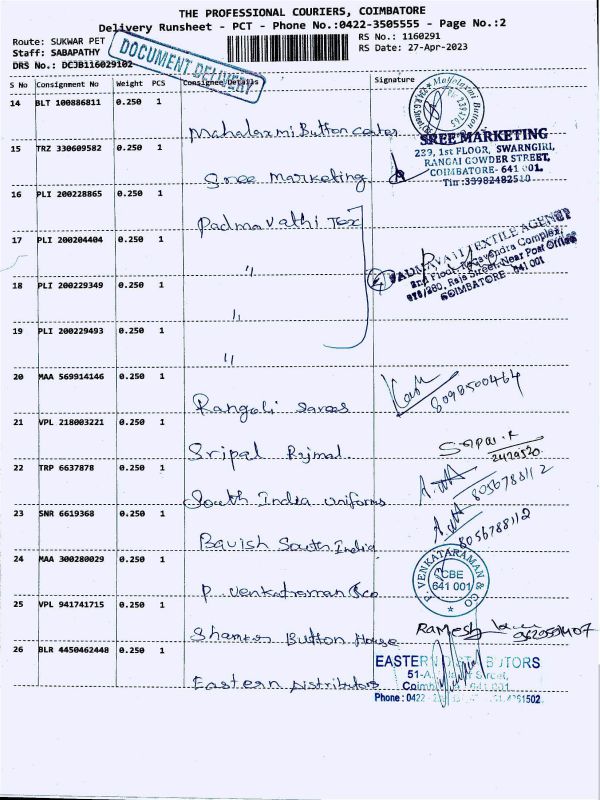 THE PROFESSIONAL COURIERS, COIMBATORE
Delivery Runsheet - PCT - Phone No.:0422-3505555 - Page No.:2
Route: SUKWAR PET
RS No.: 1160291
Staff: SABAPATHY
RS Date: 27-Apr-2023
DRS No.: DCJB116029102
DOCUMENT DELIVERY
S No Consignment No Weight PCS Consignee Details Signature
14 BLT 100886811 0.250 1
Mahalaxmi Button Center
15 TRZ 330609582 0.250 1
Sree Marketing
SREE MARKETING
239, 1st FLOOR, SWARNGIRI,
RANGAI GOWDER STREET,
COIMBATORE- 641 001.
Tin :33982482510
16 PLI 200228865 0.250 1
Padmavathi Tex
17 PLI 200204404 0.250 1
"
4
TEXTILE AGENCY
2nd Floor, Ragavendra Complex,
Raja Street, Near Post Office
COIMBATORE - 641 001
18 PLI 200229349 0.250 1
"
19 PLI 200229493 0.250 1
"
20 MAA 569914146 0.250 1
Rangoli Sarees
8098500464
21 VPL 218003221 0.250 1
Sripal Rjmal
22 TRP 6637878 0.250 1
South India uniforms
8056788112
23 SNR 6619368 0.250 1
Bavish South India
8056788112
24 MAA 300280029 0.250 1
P. Venkatraman & co
P. VENKATARAMAN & CO
CBE
641 001
25 VPL 941741715 0.250 1
Button House
RAMESH
26 BLR 4450462448 0.250 1
Eastern Distributors
EASTERN
51-A
Phone : 0422